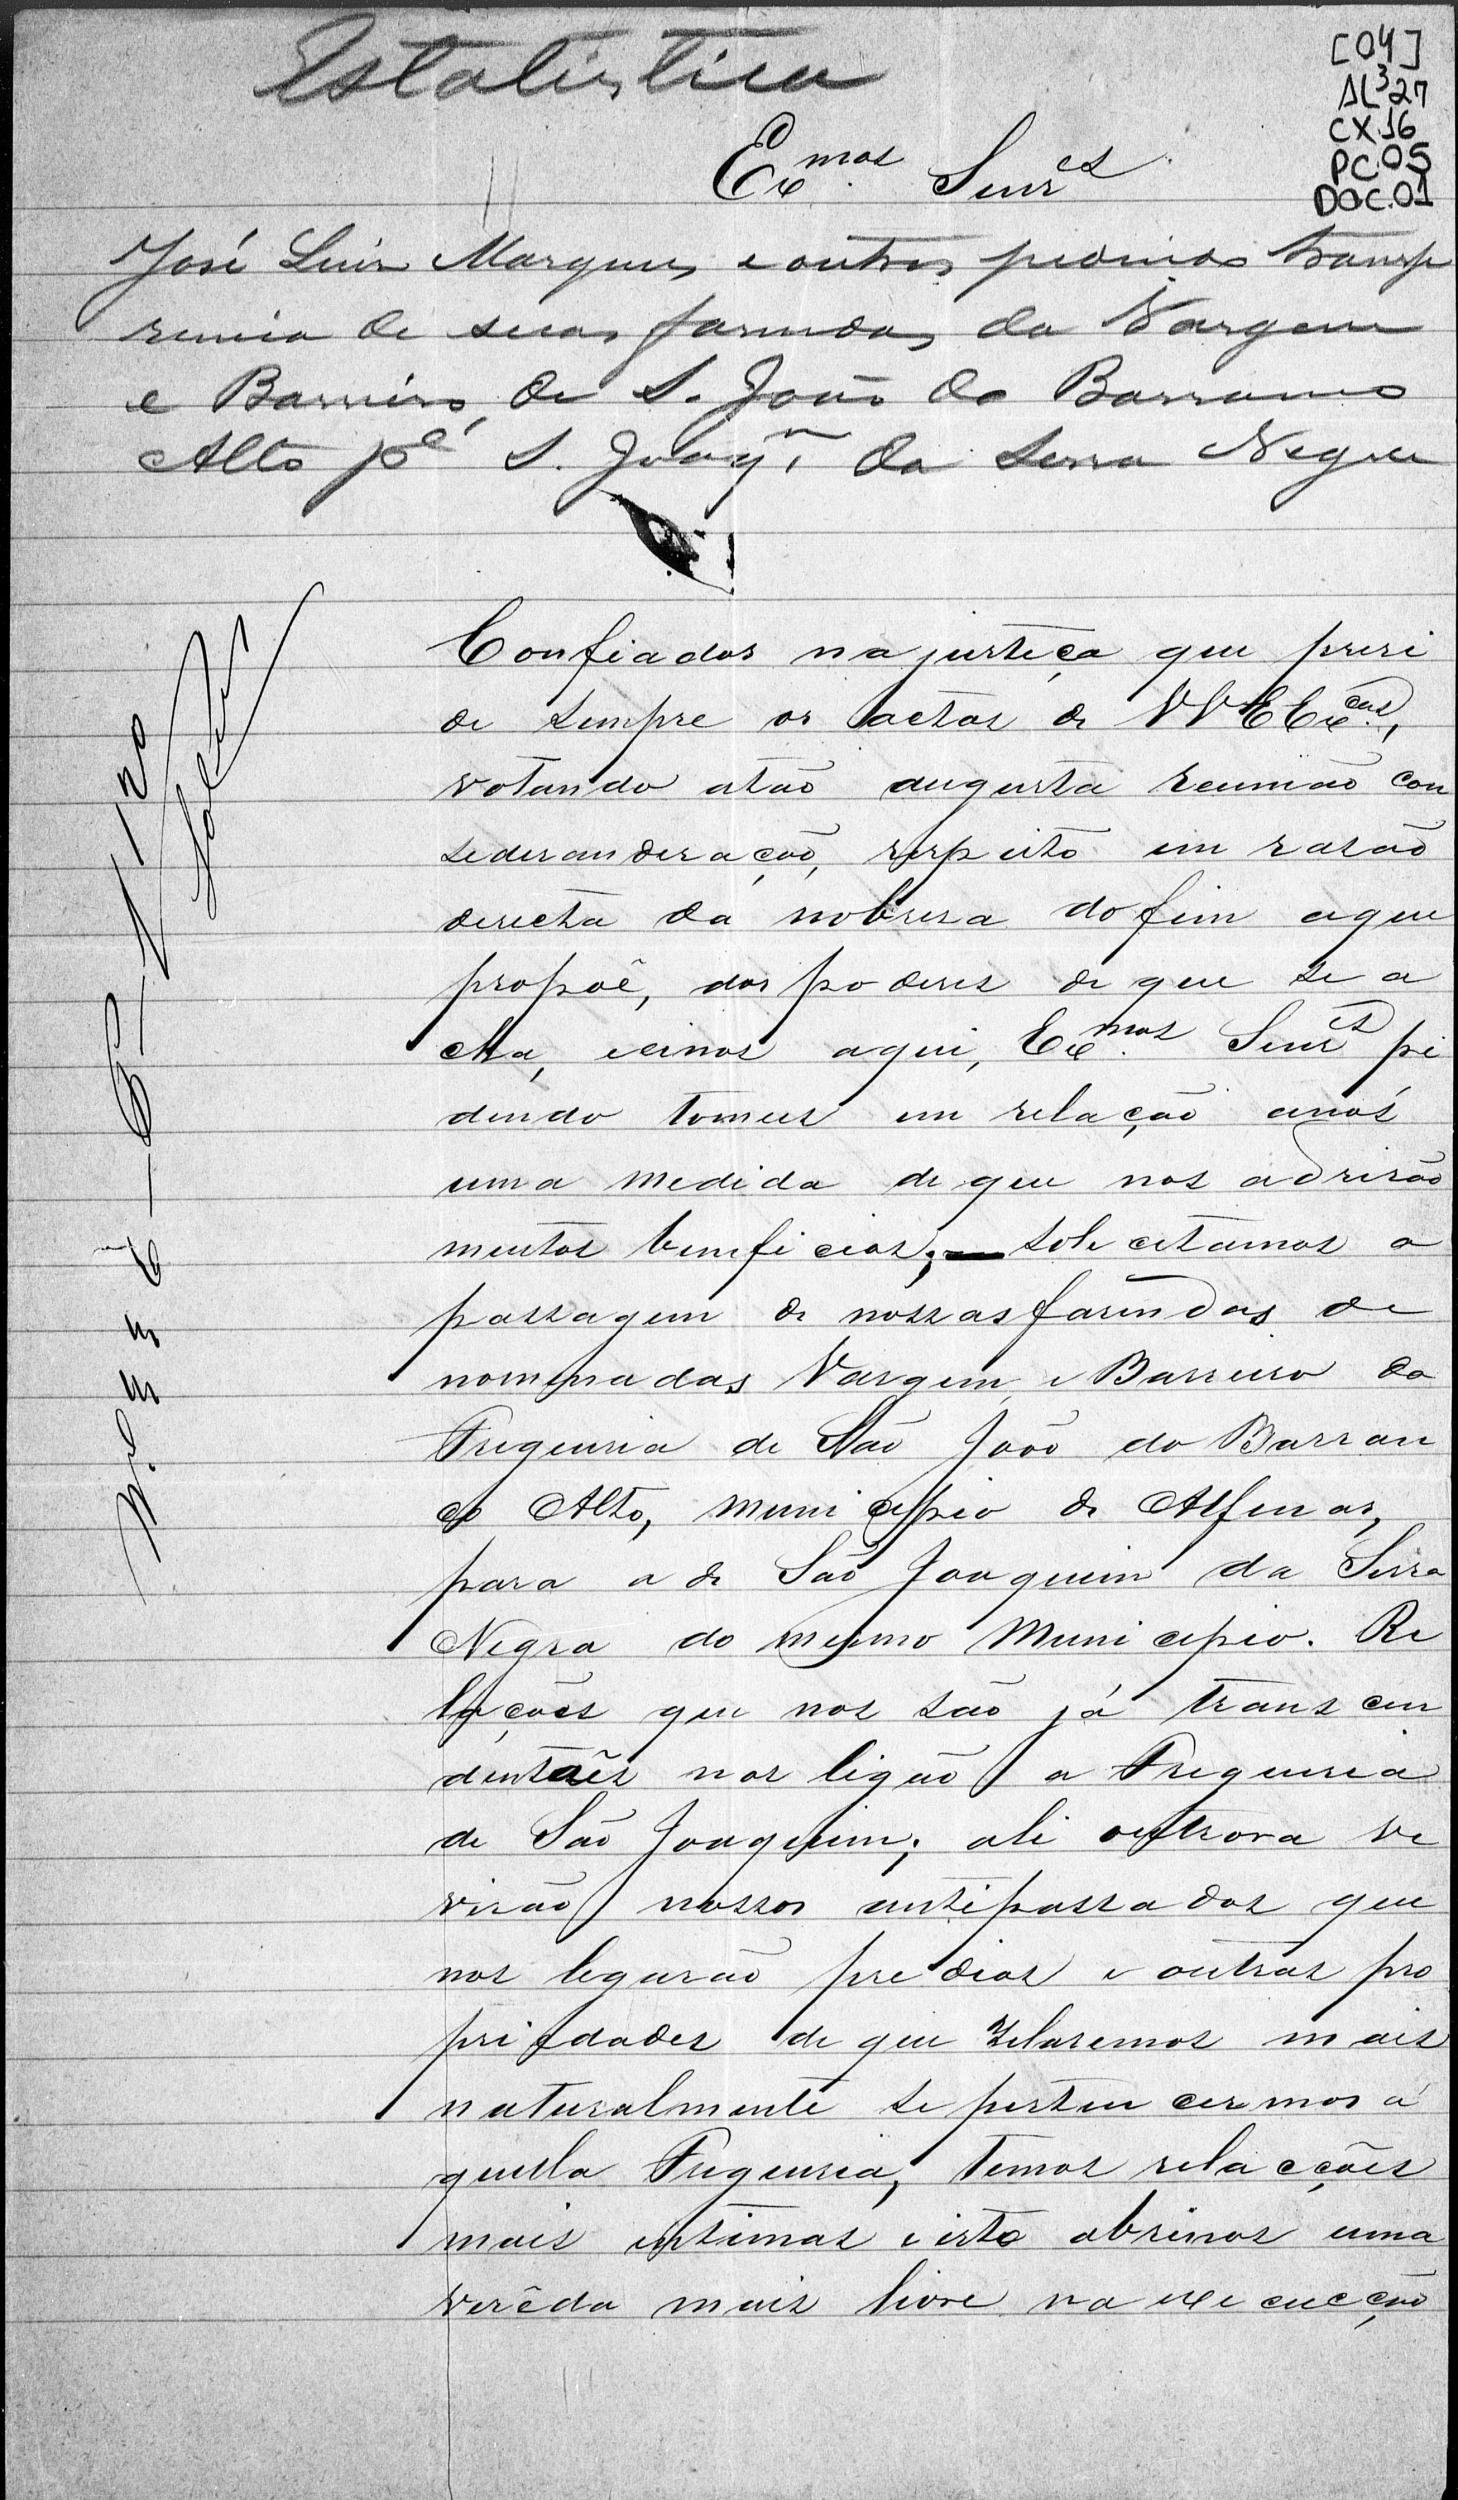 Estatistica
[04]
AL³27
CX.16
PC.05
DOC.01
Ex.mos Senr.es
José Luiz Marques e outros pedindo transfe
rencia de suas fazendas da Vargem
e Barreiro, de S. João do Barranco
Alto pª S. Joaqm. da Serra Negra
Confiados na justiça que presi
de sempre os actos de VVEEx.cias,
votando atão augusta reunião con
sideranderação, respeito em rasão
directa da nobresa do fim aque
propoê, dos poderes de que se a
cha, eeinos aqui, Ex.mos Senres pi
dindo tomeis em relação anós
uma medida de que nos advirão
muitos beneficios; solicitamos a
passagem de nossas fazendas de
nominadas Vargem, e Barreiro da
Freguesia de São João do Barran
co Alto, municipio de Alfenas,
para a de São Joaquim da Serra
Negra do mesmo Municipio. Re
lações que nos são já transcen
dentaês nos ligão a Freguesia
de São Joaquim; ali outrora vi
virão nossos antipassados que
nos legarão predios e outras pro
priedades de que zelaremos mais
naturalmente se pertencermos á
quella Freguesia, temos relacções
mais intimas e isto abrinos uma
verêda mais livre na execucção